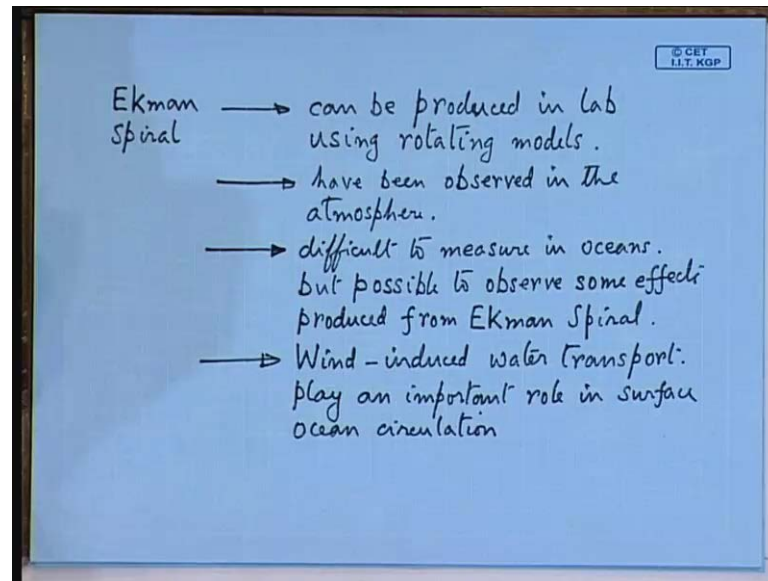 © CET
I.I.T. KGP
Ekman → can be produced in lab
Spiral using rotating models.
→ have been observed in the
atmosphere.
→ difficult to measure in oceans.
but possible to observe some effects
produced from Ekman Spiral.
→ Wind-induced water transport.
play an important role in surface
ocean circulation